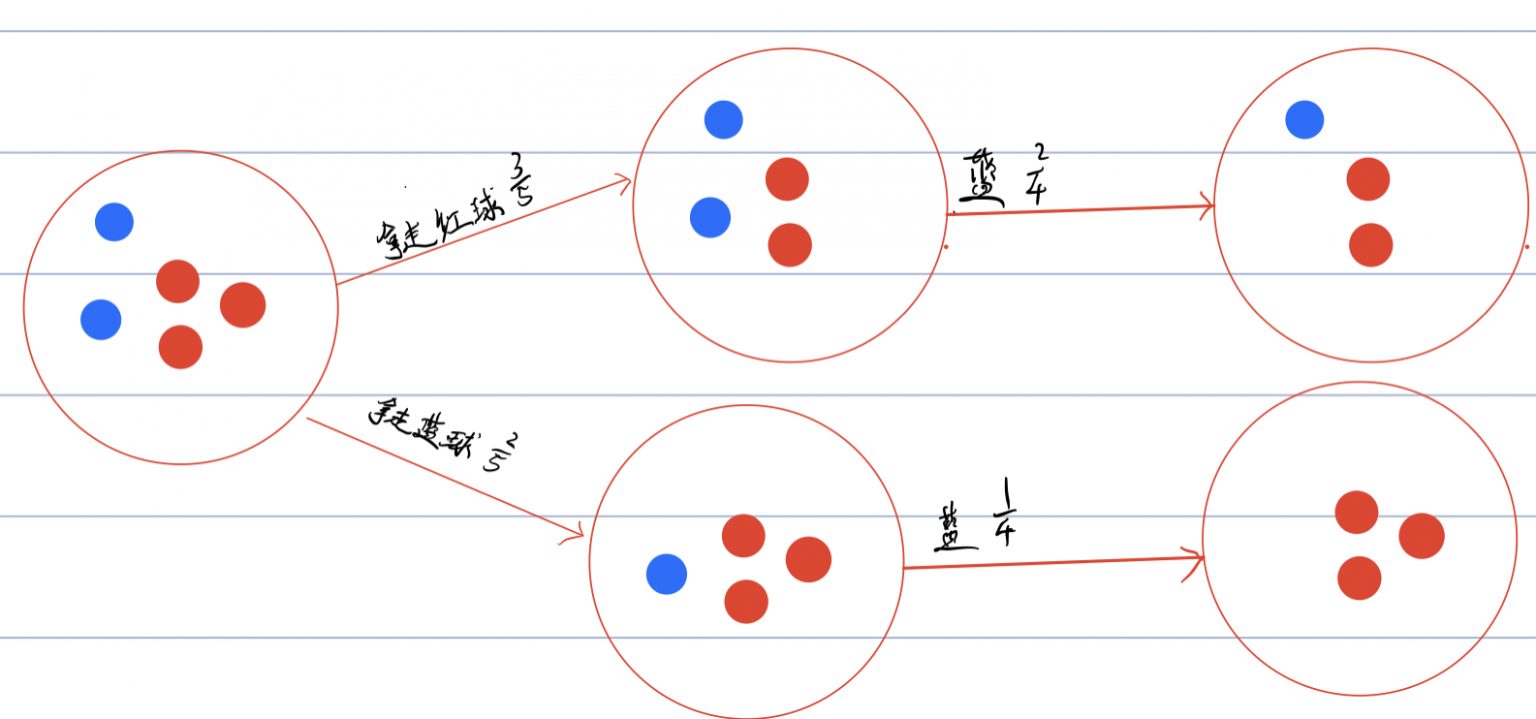 拿走红球 3/5
蓝 2/4
拿走蓝球 2/5
蓝 1/4